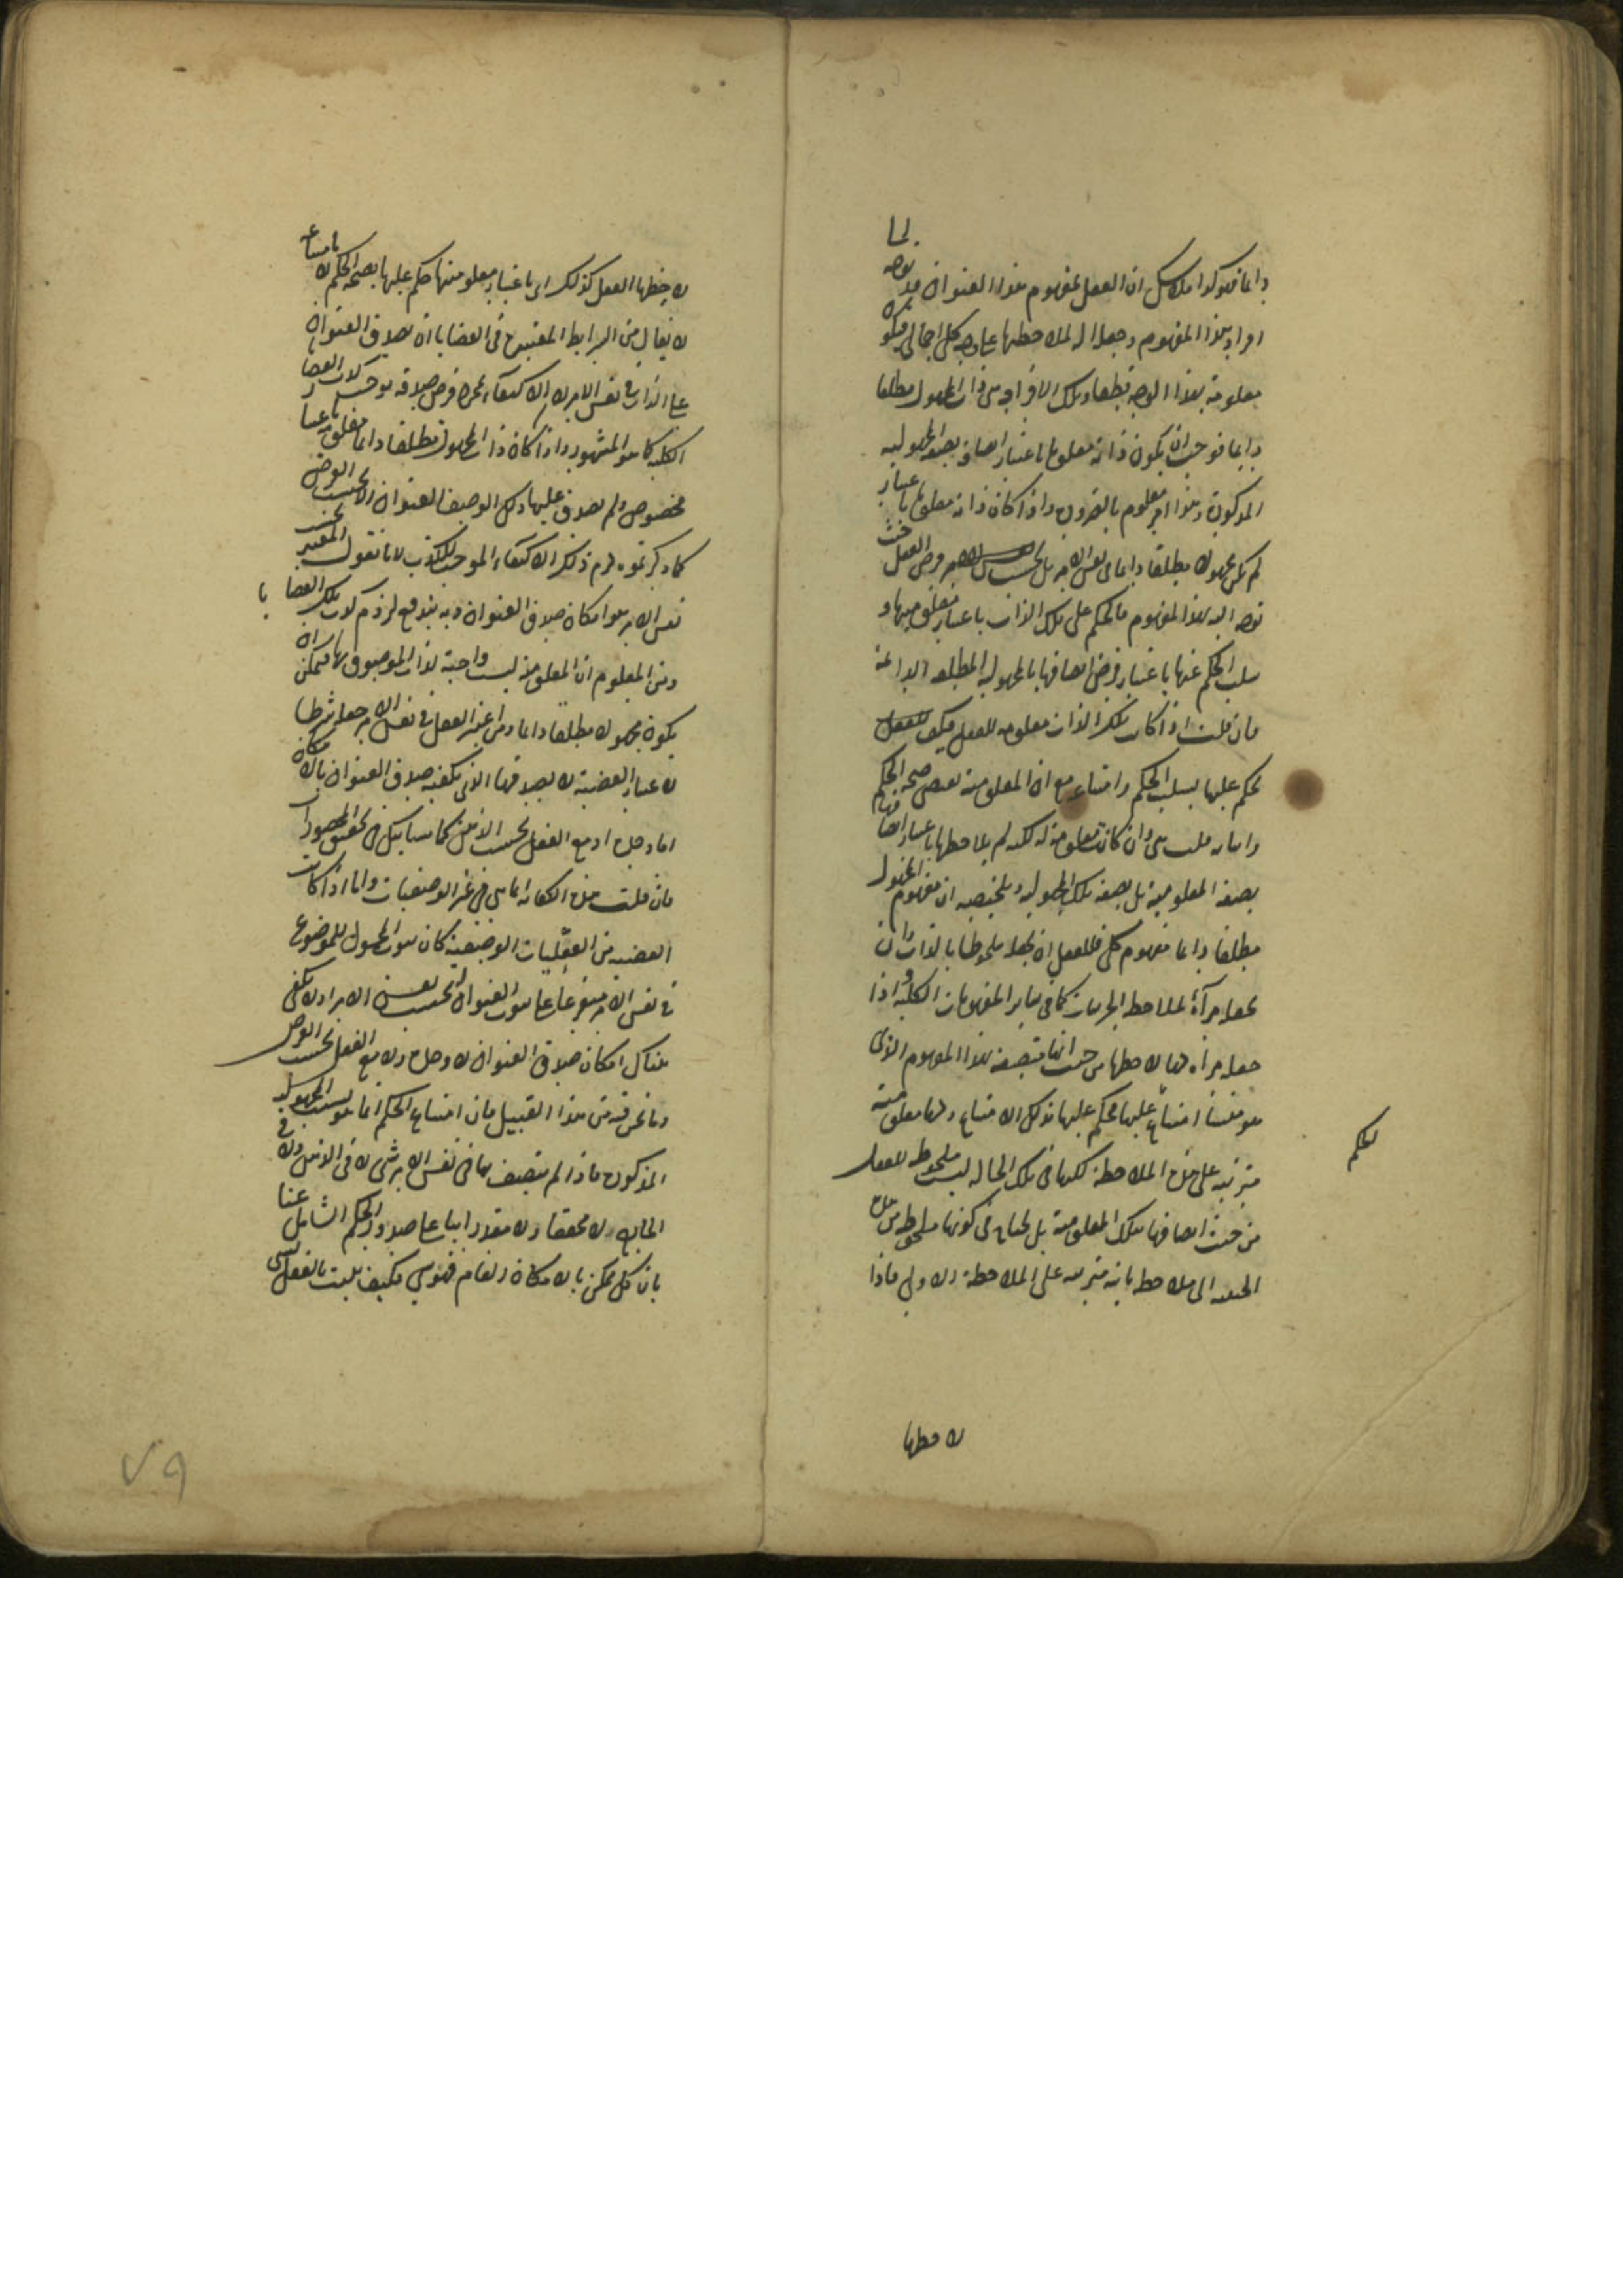 دايما فهو كذا فلا شك ان العقل بمفهوم هذا العنوان قد توجه لما
افراد هذا المفهوم وجعله آلة لملاحظتها على وجه كلي اجمالي فيكون
معلومة بهذا الوجه قطعا وتلك الافراد هي ذات المجهول مطلقا
دايما فوجب ان يكون ذاته معلوما باعتبار اتصافه بصفة المجهولية
المذكورة وهذا امر معلوم بالضرورة واذا كان ذاته معلوما باعتبار
لم يكن مجهولا مطلقا دايما في نفس الامر بل بحسب فرض العقل حيث
توجه اليه بهذا المفهوم فالحكم على تلك الذات باعتبار معلوميتها و
سلب الحكم عنها باعتبار فرض اتصافها بالمجهولية المطلقة الدائمة
فان قلت اذا كان تلك الذات معلومة للعقل فكيف
يحكم عليها بسلب الحكم وامتناعه مع ان المعلومية تقتضي صحة الحكم
قلت هي وان كانت معلومة له لكنه لم يلاحظها باعتبار اتصافها
بصفة المعلومية بل بصفة تلك المجهولية وتلخيصه ان مفهوم المجهول
مطلقا دايما مفهوم كلي فللعقل ان يجعله ملحوظا بالذات وان
يجعله مرآة لملاحظة الجزئيات كما في ساير المفهومات الكلية واذا
جعله مرآة لها لاحظها من حيث انها متصفة بهذا المفهوم الذي
هو منشأ امتناع عليها فحكم عليها بذلك الامتناع ولها معلومية
لحكم
مترتبة على هذه الملاحظة لكنها في تلك الحالة ليست ملحوظة للعقل
من حيث اتصافها بتلك المعلومية بل يحتاج في كونها ملحوظة من هذه
الحيثية الى ملاحظة ثانية مترتبة على الملاحظة الاولى فاذا
لاحظها
لاحظها العقل كذلك اي باعتبار معلوميتها حكم عليها بصحة الحكم لا بامتناعه
لا يقال من الشرايط المعتبرة في القضايا ان يصدق العنوان
على الذات في نفس الامر لان الاكتفاء بمجرد فرض صدقه يوجب كذب القضايا
الكلية كما هو المشهور واذا كان ذات المجهول مطلقا دايما معلومة باعتبار
مخصوص ولم يصدق عليها ذلك الوصف العنواني الا بحسب الفرض
كما ذكرتموه لزم ذلك الاكتفاء الموجب للكذب لانا نقول المعتبر بحسب
نفس الامر هو امكان صدق العنوان وبه يندفع لزوم كذب تلك القضايا
ومن المعلوم ان المعلومية ليست واجبة لذات الموصوف بها فيمكن ان
يكون مجهولا مطلقا دايما ومن اعتبر الفعل في نفس الامر جعله شرطا
لاعتبار القضية لا لصدقها اذ يكفيه صدق العنوان بالامكان
اما وحده او مع الفعل بحسب الفرض كما سيأتيك في تحقيق المحصورات
فان قلت هذه الكفاية انما هي في غير الوصفيات واما اذا كانت
القضية من الفعليات الوصفية كان ثبوت المحمول للموضوع
في نفس الامر متفرعا على ثبوت العنوان له بحسب نفس الامر ولا يكفي
هناك امكان صدق العنوان لا وحده ولا مع الفعل بحسب الفرض
وما نحن فيه من هذا القبيل فان امتناع الحكم انما هو بسبب المجهولية
المذكورة فاذا لم يتصف بها في نفس الامر شيء لا في الذهن ولا في
الخارج لا محققا ولا مقدرا بناء على صدور الحكم الشامل عنا
بان كل ممكن بالامكان العام فهو شيء فكيف يثبت بالفعل لشيء
٧٩